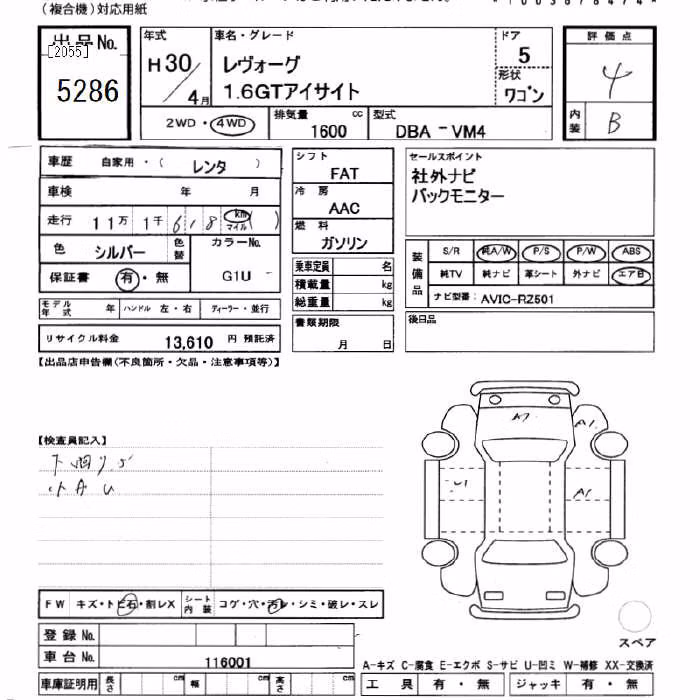 (複合機)対応用紙
出品No.
[2055]
5286
年式
H30/4月
車名・グレード
レヴォーグ
1.6GTアイサイト
ドア
5
形状
ワゴン
評価点
4
内装
B
2WD・4WD
排気量 cc
1600
型式
DBA-VM4
車歴 自家用・( レンタ )
車検 年 月
走行 11万 1千 618 km マイル ( )
色 シルバー 色替
カラーNo.
G1U
保証書 有・無
モデル年式 年 ハンドル 左・右 ディーラー・並行
リサイクル料金 13,610 円 預託済
シフト
FAT
冷房
AAC
燃料
ガソリン
乗車定員 名
積載量 kg
総重量 kg
書類期限
月 日
セールスポイント
社外ナビ
バックモニター
装備品
S/R 純A/W P/S P/W ABS
純TV 純ナビ 革シート 外ナビ エアB
ナビ型番: AVIC-RZ501
後日品
【出品店申告欄(不良箇所・欠品・注意事項等)】
【検査員記入】
下回りサ
小A U
FW キズ・トビ石・割レX シート内装 コゲ・穴・汚レ・シミ・破レ・スレ
登録No.
車台No. 116001
車庫証明用 長さ cm 幅 cm 高さ cm
A1
A1
U1
A1
スペア
A-キズ C-腐食 E-エクボ S-サビ U-凹ミ W-補修 XX-交換済
工具 有・無 ジャッキ 有・無